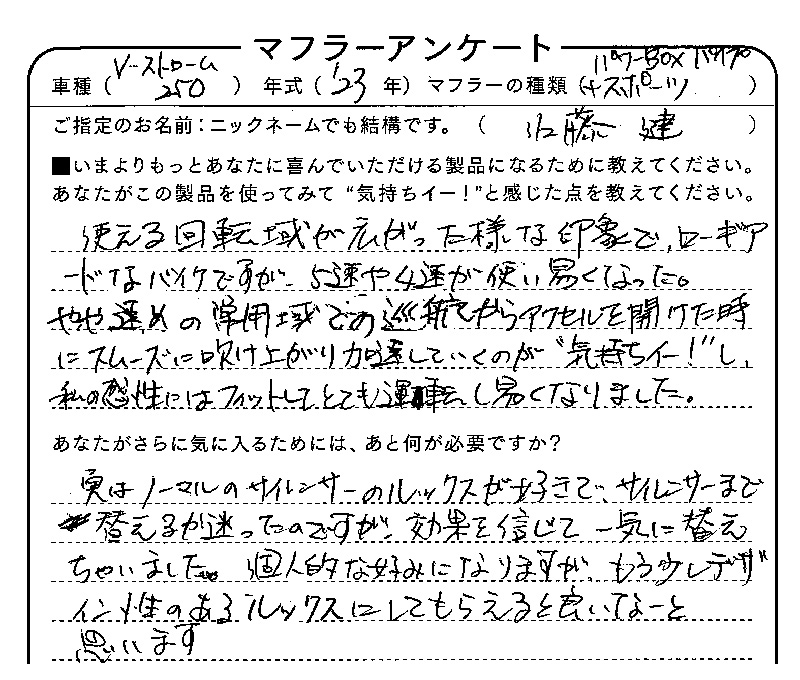 マフラーアンケート
車種（V-ストローム250） 年式（'23 年）マフラーの種類（パワーBOXパイプ+スポーツ）
ご指定のお名前：ニックネームでも結構です。（ 佐藤 健 ）
■いまよりもっとあなたに喜んでいただける製品になるために教えてください。
あなたがこの製品を使ってみて“気持ちイー！”と感じた点を教えてください。
使える回転域が広がった様な印象で、ローギア
ードなバイクですが、5速や4速が使い易くなった。
やや遅めの常用域での巡航からアクセルを開けた時
にスムーズに吹け上がり加速していくのが“気持ちイー！”し、
私の感性にはフィットしてとても運転し易くなりました。
あなたがさらに気に入るためには、あと何が必要ですか？
実はノーマルのサイレンサーのルックスが好きで、サイレンサーまで
替えるか迷ったのですが、効果を信じて一気に替え
ちゃいました。個人的な好みになりますが、もう少しデザ
イン性のあるルックスにしてもらえると良いなーと
思います